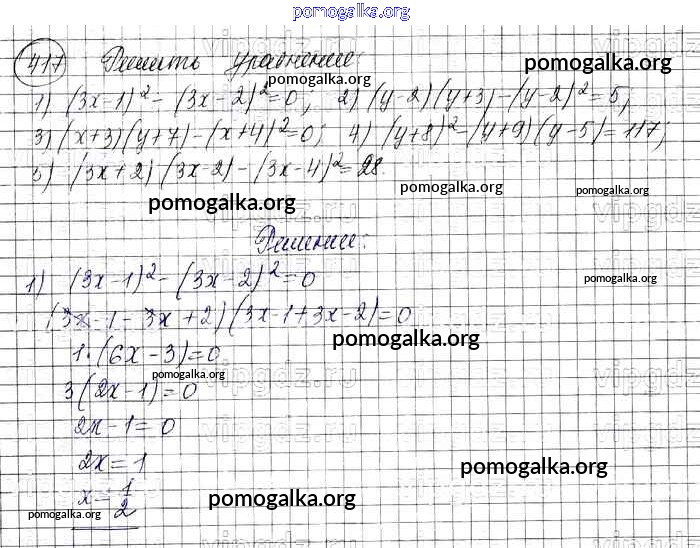 pomogalka.org
417 Решить уравнение:
pomogalka.org
pomogalka.org
1) (3x-1)²-(3x-2)²=0; 2) (y-2)(y+3)-(y-2)²=5;
3) (x+3)(y+7)-(x+4)²=0; 4) (y+8)²-(y+9)(y-5)=117;
5) (3x+2)(3x-2)-(3x-4)²=28.
pomogalka.org
pomogalka.org
pomogalka.org
Решение:
1) (3x-1)²-(3x-2)²=0
pomogalka.org
(3x-1-3x+2)(3x-1+3x-2)=0
pomogalka.org
1·(6x-3)=0
pomogalka.org
3(2x-1)=0
2x-1=0
2x=1
pomogalka.org
x=1/2
pomogalka.org
pomogalka.org
vipgdz.ru